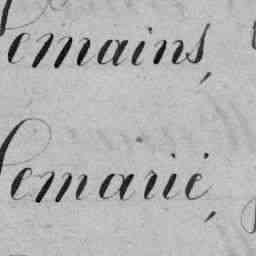 Lemains,
Lemarié,